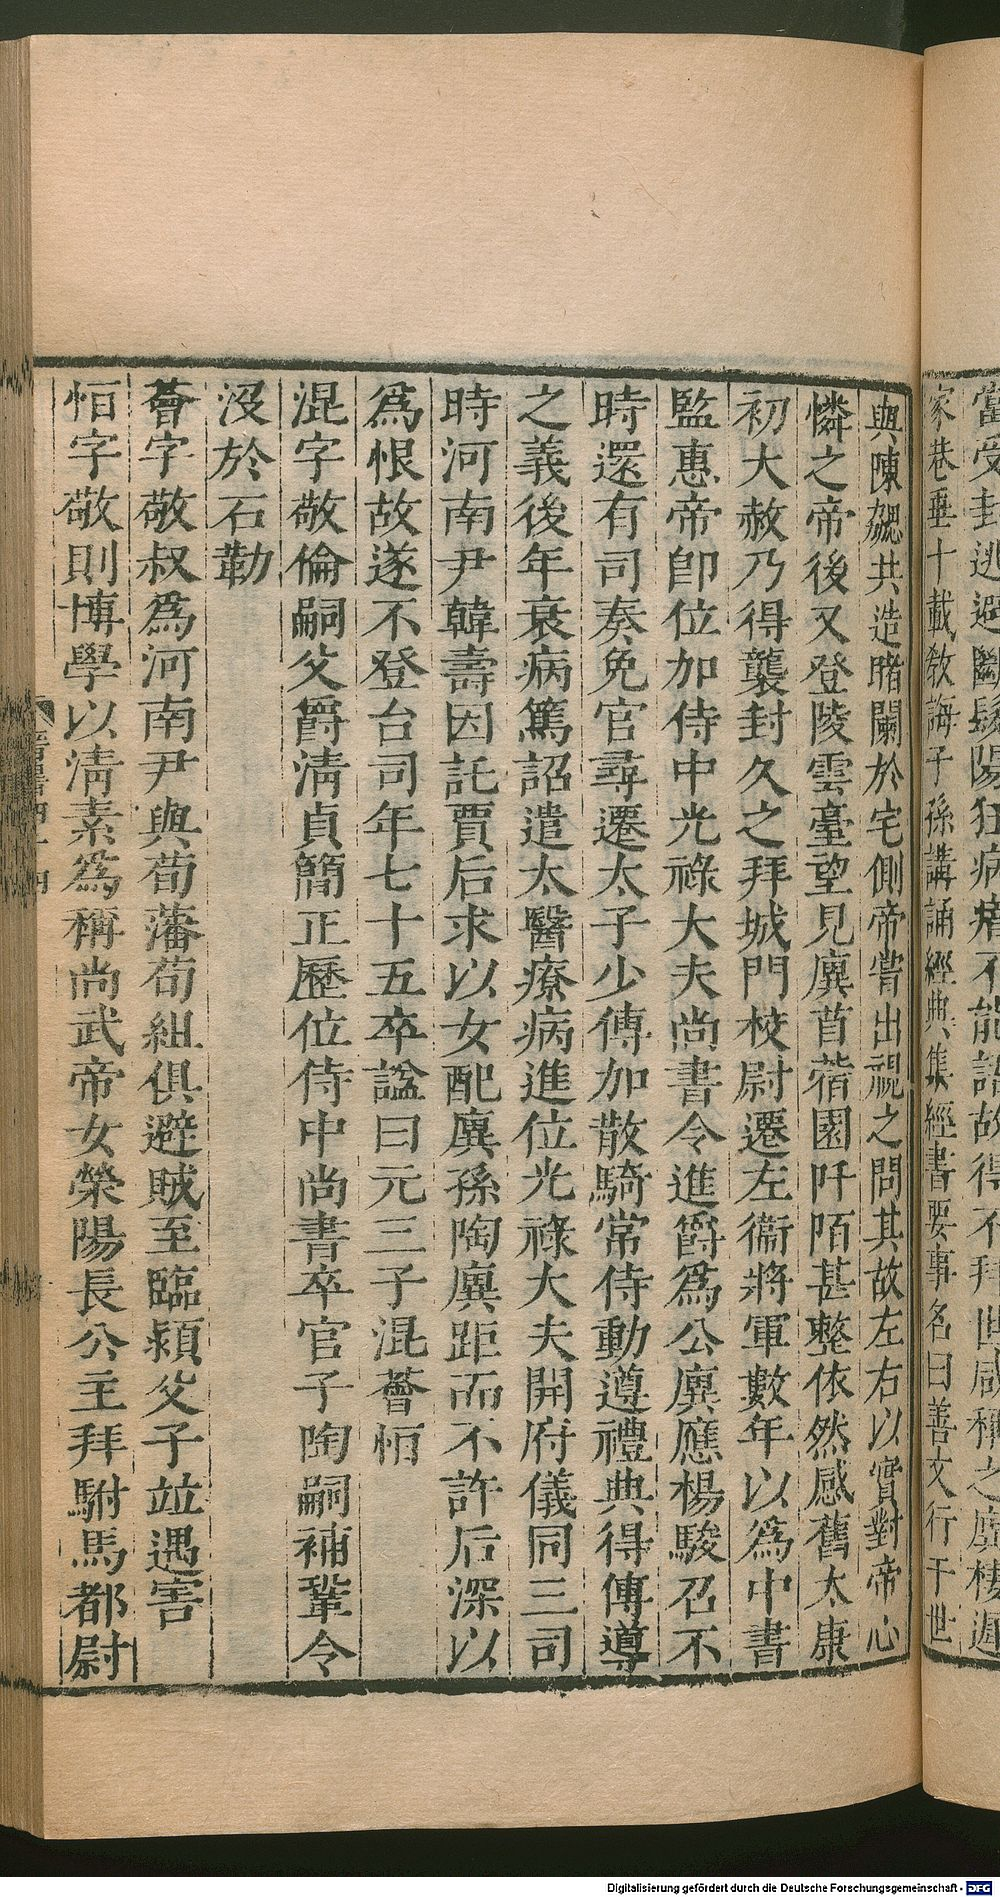 當受封逃避斷髮陽狂病瘖不能語故得不拜世咸稱之廙棲遲
家巷垂十載敎誨子孫講誦經典集經書要事名曰善文行于世
與陳勰共造豬闌於宅側帝嘗出視之問其故左右以實對帝心
憐之帝後又登陵雲臺望見廙苜蓿園阡陌甚整依然感舊太康
初大赦乃得襲封久之拜城門校尉遷左衞將軍數年以爲中書
監惠帝卽位加侍中光祿大夫尚書令進爵爲公廙應楊駿召不
時還有司奏免官尋遷太子少傅加散騎常侍動遵禮典得傅導
之義後年衰病篤詔遣太醫療病進位光祿大夫開府儀同三司
時河南尹韓壽因託賈后求以女配廙孫陶廙距而不許后深以
爲恨故遂不登台司年七十五卒諡曰元三子混薈恒
混字敬倫嗣父爵淸貞簡正歷位侍中尚書卒官子陶嗣補鞏令
沒於石勒
薈字敬叔爲河南尹與荀藩荀組俱避賊至臨潁父子並遇害
恒字敬則博學以淸素爲稱尚武帝女滎陽長公主拜駙馬都尉
Digitalisierung gefördert durch die Deutsche Forschungsgemeinschaft - DFG